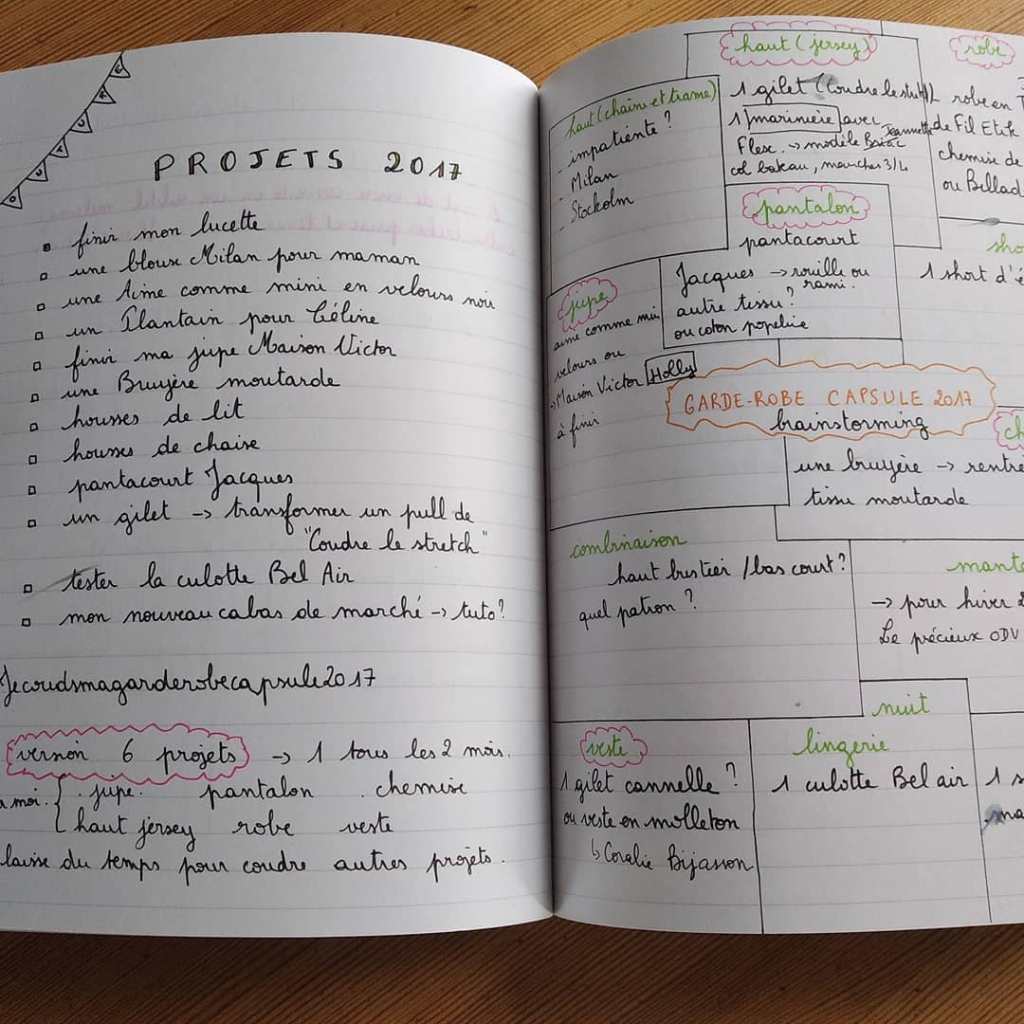 PROJETS 2017
finir mon lucette
une blouse Milan pour maman
une Aime comme mini en velours noir
un Plantain pour Céline
finir ma jupe Maison Victor
une Bruyère moutarde
housses de lit
housses de chaise
pantacourt Jacques
un gilet → transformer un pull de
"Coudre le stretch"
tester la culotte Bel Air
mon nouveau cabas de marché → tuto?
Jecoudsmagarderobecapsule2017
version 6 projets → 1 tous les 2 mois.
moi. { . jupe. pantalon . chemise
haut jersey robe veste
laisse du temps pour coudre autres projets.
haut (chaine et trame)
- impatiente ?
- Milan
- Stockolm
-
haut (jersey)
1 gilet (Coudre le stretch)
1 marinière avec
Flex. → modèle Jeannette
col bateau, manches 3/4
robe
1 robe en
de Fil Etik
chemise de
ou Bellad
pantalon
pantacourt
Jacques → rouille ou
rami.
autre tissu?
ou coton popeline
sho
1 short d'é
jupe
aime comme mini
velours ou
→ Maison Victor Holly
à finir
GARDE-ROBE CAPSULE 2017
brainstorming
ch
une bruyère → rentré
tissu moutarde
combinaison
haut bustier / bas court?
quel patron ?
mante
→ pour hiver 2
Le précieux ODV
veste
1 gilet cannelle ?
ou veste en molleton
↳ Coralie Bijasson
lingerie
1 culotte Bel air
nuit
1 s
ma